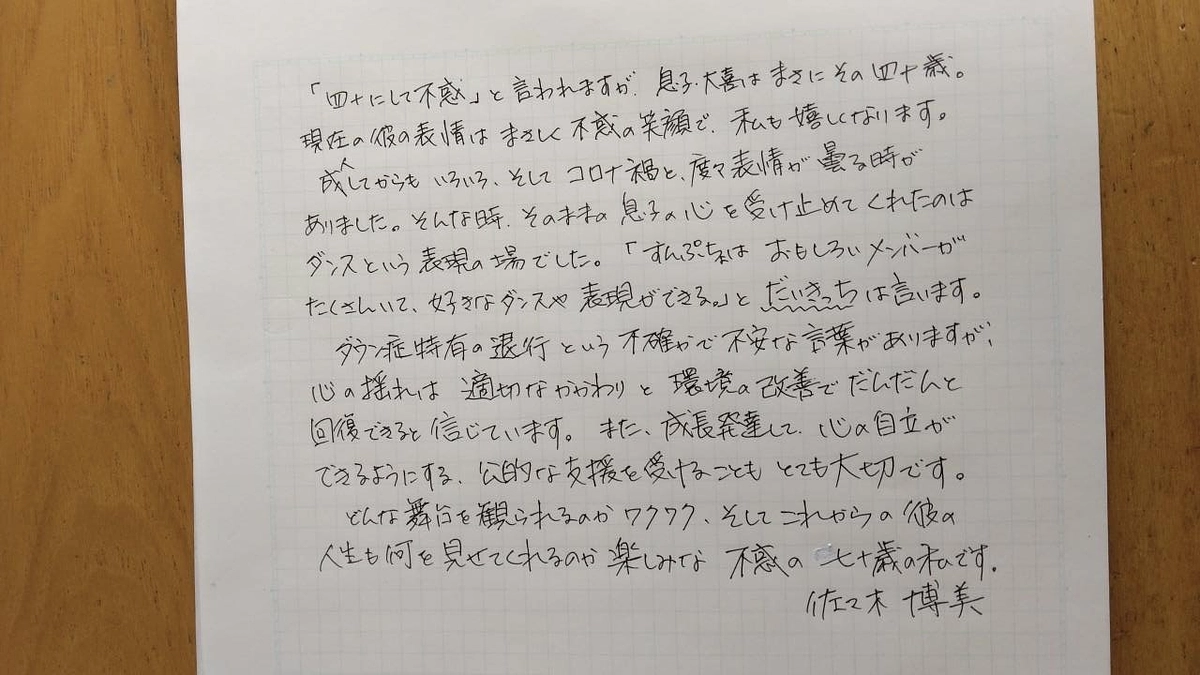 「四十にして不惑」と言われますが、息子・大喜はまさにその四十歳。
現在の彼の表情はまさしく不惑の笑顔で、私も嬉しくなります。
成人してからもいろいろ、そしてコロナ禍と、度々表情が曇る時が
ありました。そんな時、そのままの息子の心を受け止めてくれたのは
ダンスという表現の場でした。「すんぷちょは おもしろいメンバーが
たくさんいて、好きなダンスや表現ができる。」とだいきっちは言います。
ダウン症特有の退行という不確かで不安な言葉がありますが、
心の揺れは適切なかかわりと環境の改善でだんだんと
回復できると信じています。また、成長発達して、心の自立が
できるようにする、公的な支援を受けることもとても大切です。
どんな舞台を観られるのかワクワク、そしてこれからの彼の
人生も何を見せてくれるのか楽しみな 不惑の 七十歳の私です。
佐々木 博美